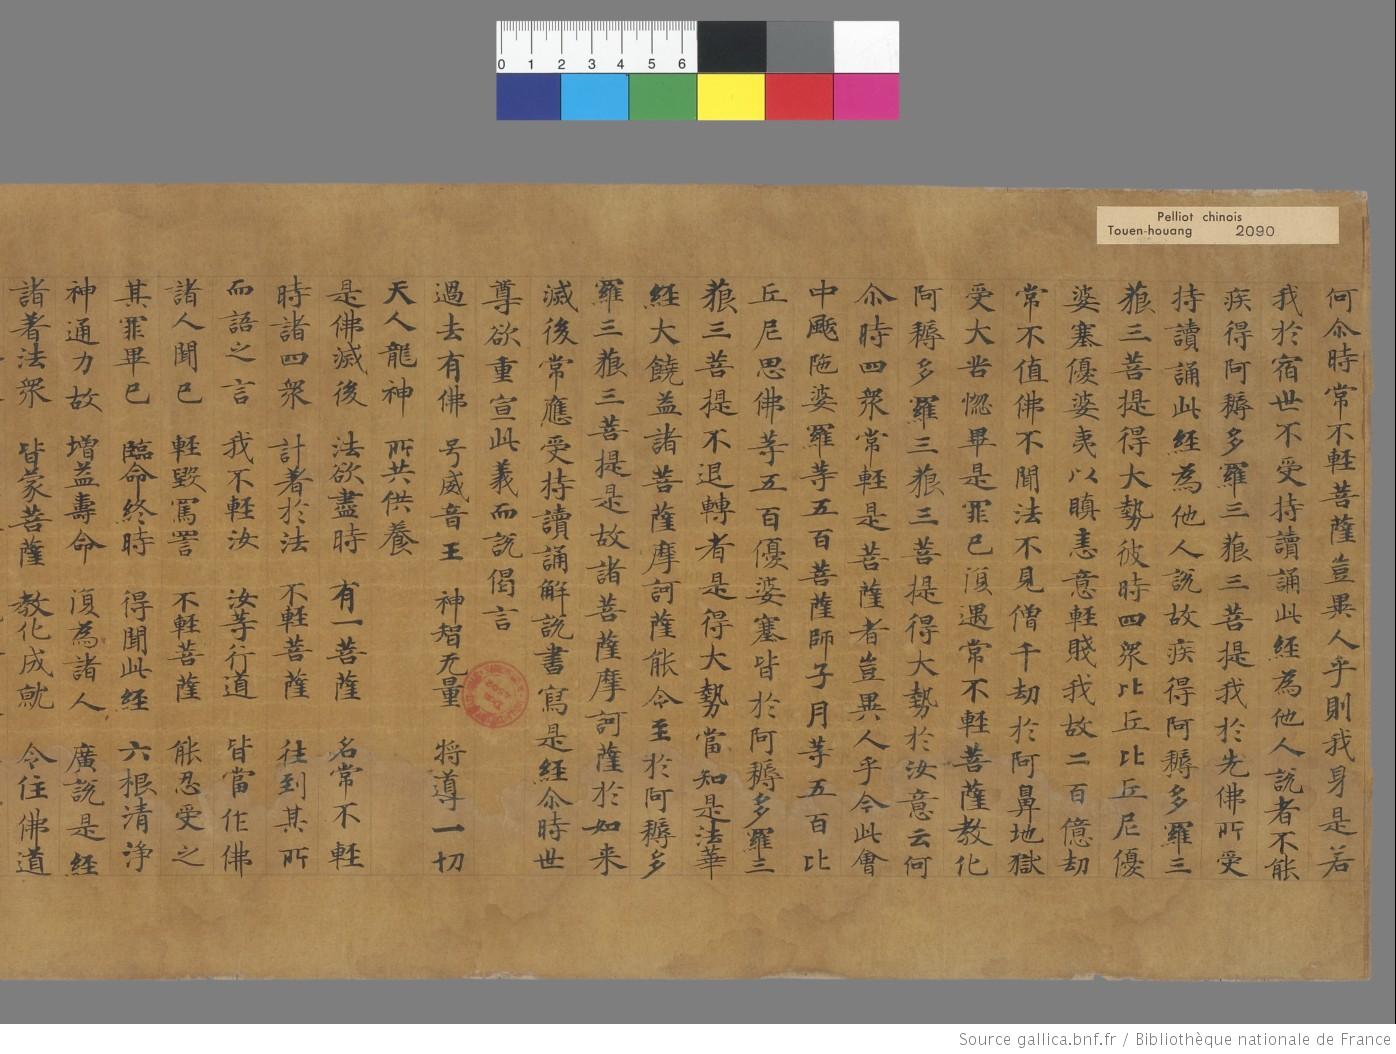 0 1 2 3 4 5 6
Pelliot chinois
Touen-houang 2090
何尒時常不輕菩薩豈異人乎則我身是若
我於宿世不受持讀誦此經為他人說者不能
疾得阿耨多羅三藐三菩提我於先佛所受
持讀誦此經為他人說故疾得阿耨多羅三
藐三菩提得大勢彼時四眾比丘比丘尼優
婆塞優婆夷以瞋恚意輕賤我故二百億劫
常不值佛不聞法不見僧千劫於阿鼻地獄
受大苦惱畢是罪已復遇常不輕菩薩教化
阿耨多羅三藐三菩提得大勢於汝意云何
尒時四眾常輕是菩薩者豈異人乎今此會
中颰陁婆羅等五百菩薩師子月等五百比
丘尼思佛等五百優婆塞皆於阿耨多羅三
藐三菩提不退轉者是得大勢當知是法華
經大饒益諸菩薩摩訶薩能令至於阿耨多
羅三藐三菩提是故諸菩薩摩訶薩於如來
滅後常應受持讀誦解說書寫是經尒時世
尊欲重宣此義而說偈言
過去有佛 号威音王 神智无量 將導一切
天人龍神 所共供養
是佛滅後 法欲盡時 有一菩薩 名常不輕
時諸四眾 計著於法 不輕菩薩 往到其所
而語之言 我不輕汝 汝等行道 皆當作佛
諸人聞已 輕毀罵詈 不輕菩薩 能忍受之
其罪畢已 臨命終時 得聞此經 六根清淨
神通力故 增益壽命 復為諸人 廣說是經
諸著法眾 皆蒙菩薩 教化成就 令住佛道
Source gallica.bnf.fr / Bibliothèque nationale de France